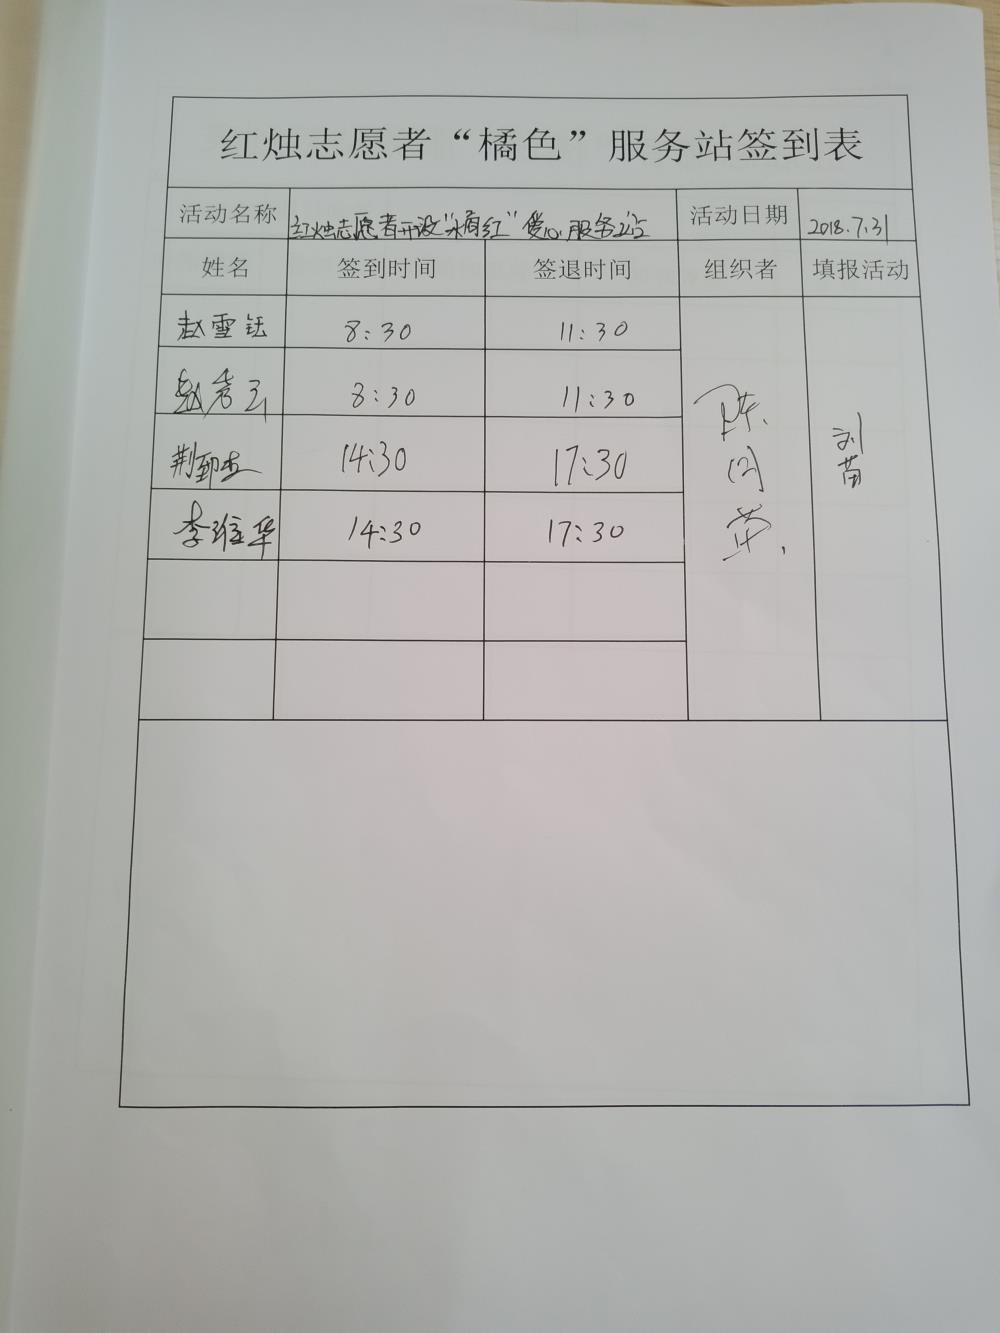 红烛志愿者“橘色”服务站签到表
活动名称 红烛志愿者开设“永葆红”爱心服务站 活动日期 2018.7.31
姓名 签到时间 签退时间 组织者 填报活动
赵雪钰 8:30 11:30
赵秀 8:30 11:30
荆 14:30 17:30
李维华 14:30 17:30
陈
刘苗